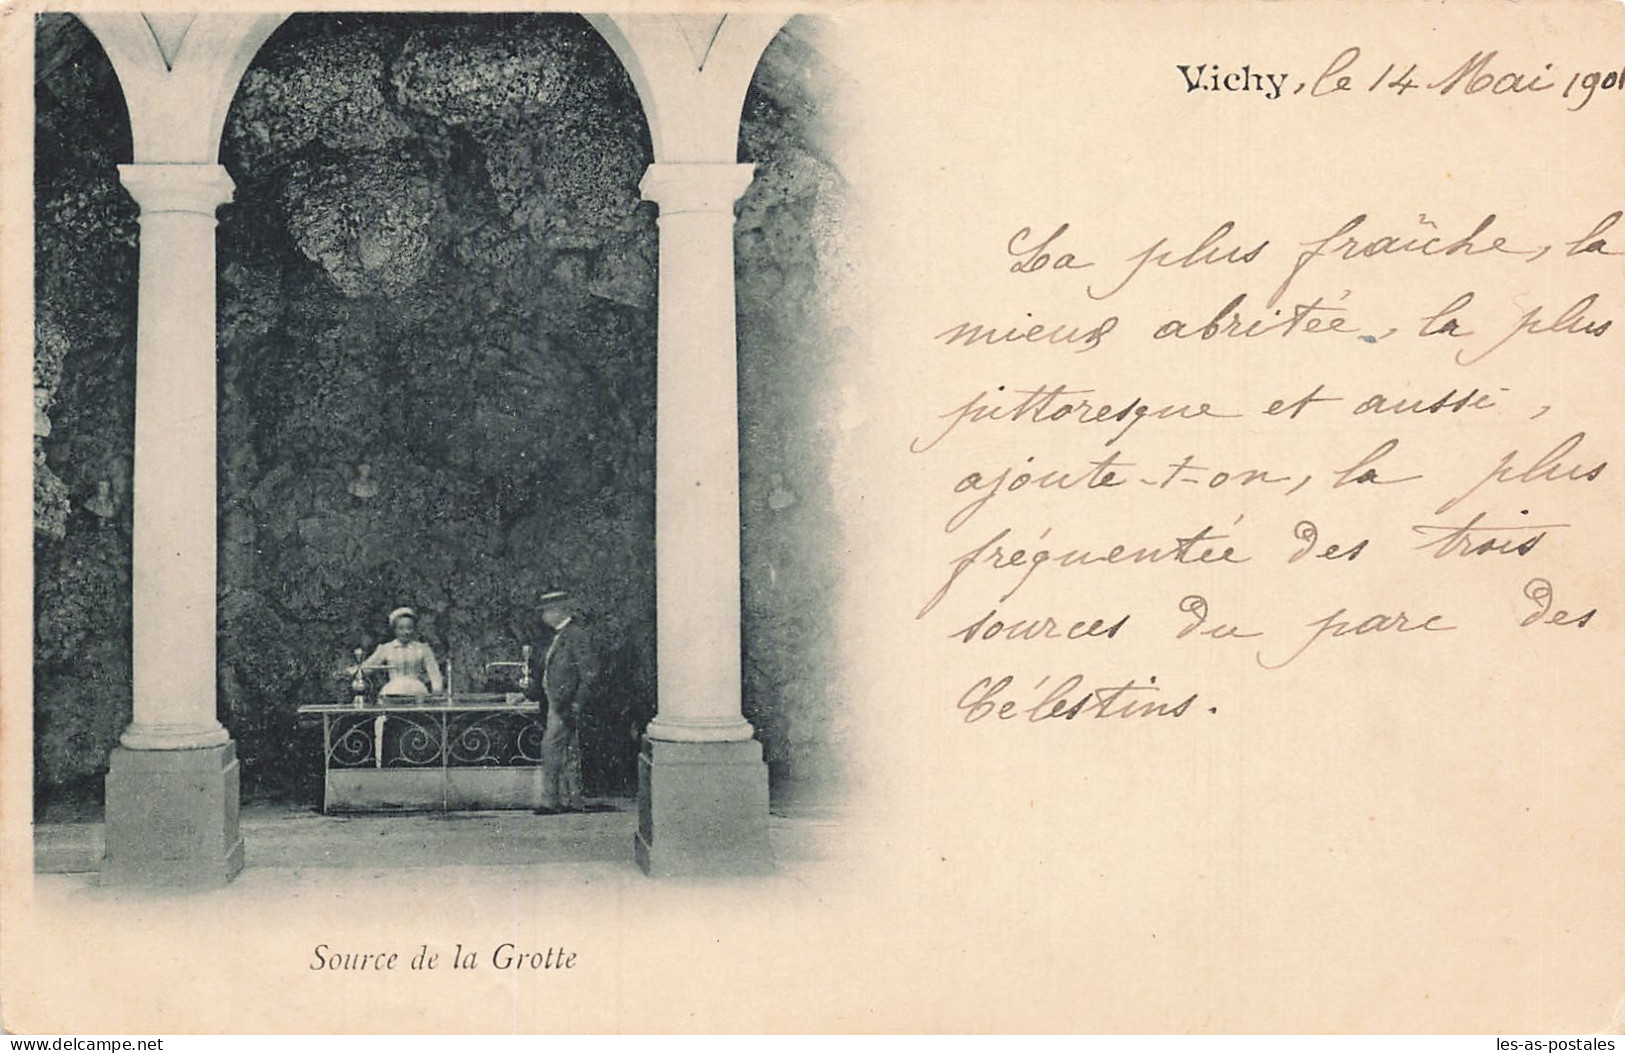 Vichy, le 14 Mai 1901
La plus fraîche, la
mieux abritée, la plus
pittoresque et aussi,
ajoute-t-on, la plus
fréquentée des trois
sources du parc des
Célestins.
Source de la Grotte
delcampe.net
les-as-postales